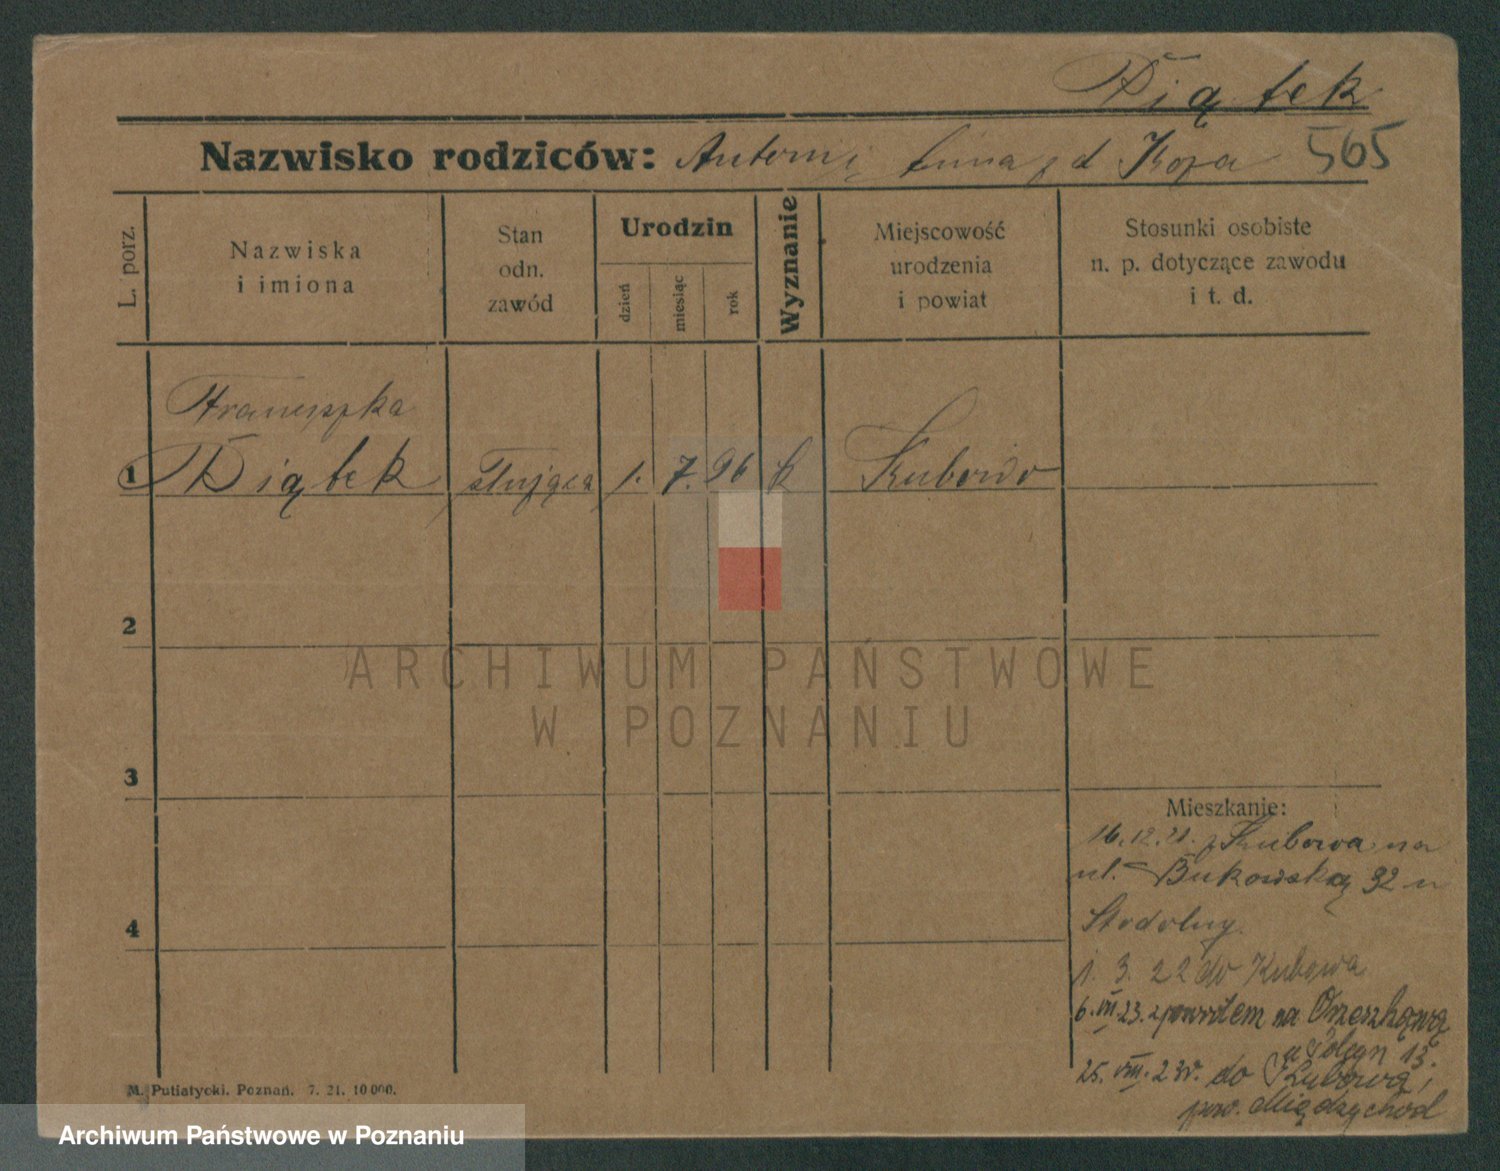 Piątek
Nazwisko rodziców: Antoni i Anna z d Koza 565
L. porz.
Nazwiska
i imiona
Stan
odn.
zawód
Urodzin
dzień
miesiąc
rok
Wyznanie
Miejscowość
urodzenia
i powiat
Stosunki osobiste
n. p. dotyczące zawodu
i t. d.
Franciszka
1 Piątek służąca 1. 7. 96 k Kubowo
2
3
4
Mieszkanie:
16.12.21. z Kubowa na
ul. Bukowską 32 u
Stodolny.
1. 3. 22 do Kubowa
6.VII.23. z powrotem na Orzeszkową
u 13.
25. VIII. 23r. do Kubowa,
pow. Międzychód
M. Putiatycki. Poznań. 7. 21. 10 000.
ARCHIWUM PAŃSTWOWE
W POZNANIU
Archiwum Państwowe w Poznaniu